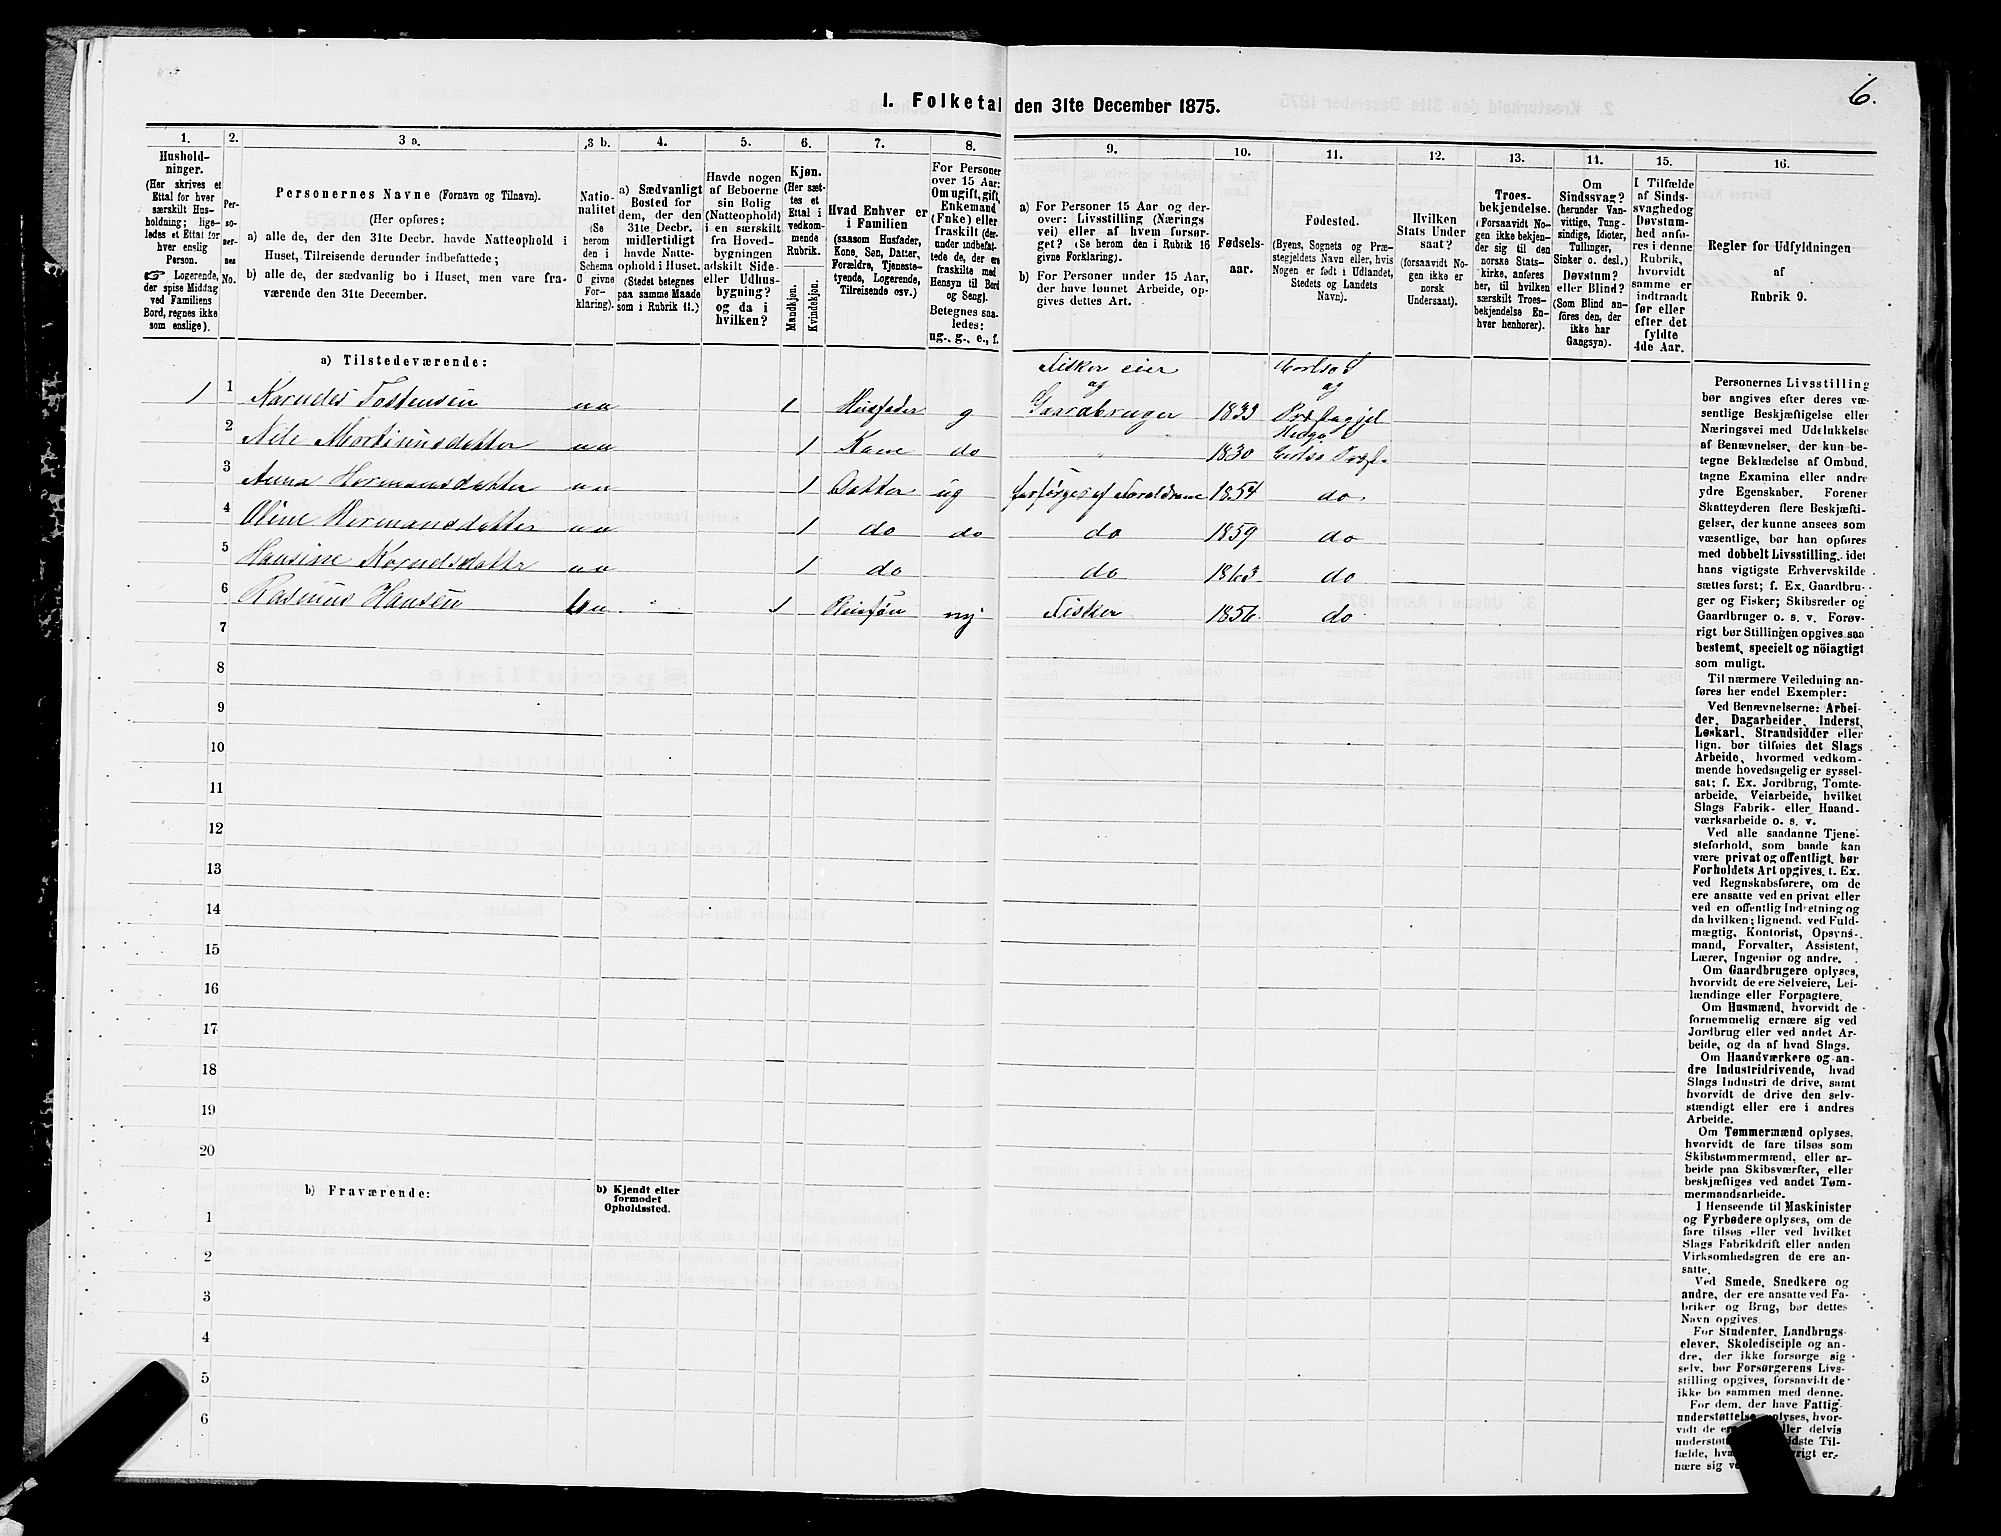 6.
1. Folketal den 31te December 1875.
1.
2.
3 a.
3 b.
4.
5.
6.
7.
8.
9.
10.
11.
12.
13.
14.
15.
16.
Hushold-
ninger.
(Her skrives et
Ettal for hver
særskilt Hus-
holdning; lige-
ledes et Ettal for
hver enslig
Person.
☞ Logerende,
der spise Middag
ved Familiens
Bord, regnes ikke
som enslige).
Per-
so-
ner-
nes
No.
Personernes Navne (Fornavn og Tilnavn).
(Her opføres:
a) alle de, der den 31te Decbr. havde Natteophold i
Huset, Tilreisende derunder indbefattede;
b) alle de, der sædvanlig bo i Huset, men vare fra-
værende den 31te December.
Natio-
nalitet
(Se
herom
den i
Schema
C givne
For-
klaring).
a) Sædvanligt
Bosted for
dem, der den
31te Decbr.
midlertidigt
havde Natte-
ophold i Huset.
(Stedet betegnes
paa samme Maade
som i Rubrik 11.)
Havde nogen
af Beboerne
sin Bolig
(Natteophold)
i en særskilt
fra Hoved-
bygningen
adskilt Side-
eller Udhus-
bygning?
og da i
hvilken?
Kjøn.
(Her sæt-
tes et
Ettal i
vedkom-
mende
Rubrik.
Mandkjøn.
Kvindekjøn.
Hvad Enhver er
i Familien
(saasom Husfader,
Kone, Søn, Datter,
Forældre, Tjeneste-
tyende, Logerende,
Tilreisende osv.)
For Personer
over 15 Aar:
Om ugift, gift,
Enkemand
(Enke) eller
fraskilt (der-
under indbefat-
tede de, der ere
fraskilte med
Hensyn til Bord
og Seng).
Betegnes saa-
ledes:
ug., g., e., f.
a) For Personer 15 Aar og der-
over: Livsstilling (Nærings
vei) eller af hvem forsør-
get? (Se herom den i Rubrik 16
givne Forklaring).
b) For Personer under 15 Aar,
der have lønnet Arbeide, op-
gives dettes Art.
Fødsels-
aar.
Fødested.
(Byens, Sognets og Præ-
stegjeldets Navn eller, hvis
Nogen er født i Udlandet,
Stedets og Landets
Navn).
Hvilken
Stats Under
saat?
(forsaavidt No-
gen ikke er
norsk
Undersaat).
Troes-
bekjendelse.
(Forsaavidt No-
gen ikke bekjen-
der sig til den
norske Stats-
kirke, anføres
her, til hvilken
særskilt Troes-
bekjendelse En-
hver henhører).
Om
Sindssvag?
(herunder Van-
vittige, Tung-
sindige, Idioter,
Tullinger,
Sinker o. desl.)
Døvstum?
eller Blind?
(Som Blind an-
føres den, der
ikke har
Gangsyn).
I Tilfælde
af Sinds-
svaghed og
Døvstum-
hed anfø-
res i denne
Rubrik,
hvorvidt
samme er
indtraadt
før eller
efter det
fyldte
4de Aar.
Regler for Udfyldningen
af
Rubrik 9.
a) Tilstedeværende:
1 1 Karudes Tostensen nn 1 Husfader g Fisker eier og Gaardbruger 1833
2 Nele Mortinusdatter nn 1 Kone do " 1830
3 Anna Hermansdatter nn 1 Datter ug forsørges af Forældrene 1854 do
4 Oline Hermansdatter nn 1 do do do 1859 do
5 Hansine nn 1 do do 1863 do
6 Rasmus Hansen 1 Fisker 1856 do
7
8
9
10
11
12
13
14
15
16
17
18
19
20
b) Fraværende:
b) Kjendt eller
formodet
Opholdssted.
1
2
3
4
5
6
Personernes Livsstilling
bør angives efter deres væ-
sentlige Beskjæftigelse eller
Næringsvei med Udelukkelse
af Benævnelser, der kun be-
tegne Beklædelse af Ombud,
tagne Examina eller andre
ydre Egenskaber. Forener
Skatteyderen flere Beskjæfti-
gelser, der kunne ansees som
væsentlige, bør han opføres
med dobbelt Livsstilling, idet
hans vigtigste Erhvervskilde
sættes først; f. Ex. Gaardbru-
ger og Fisker; Skibsreder og
Gaardbruger o. s. v. Forøv-
rigt bør Stillingen opgives saa
bestemt, specielt og nøiagtigt
som muligt.
Til nærmere Veiledning an-
føres her endel Exempler:
Ved Benævnelserne: Arbei-
der, Dagarbeider, Inderst,
Løskarl, Strandsidder eller
lign. bør tilføies det Slags
Arbeide, hvormed vedkom-
mende hovedsagelig er syssel-
sat; f. Ex. Jordbrug, Tomte-
arbeide, Veiarbeide, hvilket
Slags Fabrik- eller Haand-
værksarbeide o. s. v.
Ved alle saadanne Tjene-
steforhold, som baade kan
være privat og offentligt, bør
Forholdets Art opgives, t. Ex.
ved Regnskabsførere, om de
ere ansatte ved en privat eller
ved en offentlig Indretning og
da hvilken; lignend. ved Fuld-
mægtig, Kontorist, Opsyns-
mand, Forvalter, Assistent,
Lærer, Ingeniør og andre.
Om Gaardbrugere oplyses,
hvorvidt de ere Selveiere, Lei-
lændinge eller Forpagtere.
Om Husmænd, hvorvidt de
fornemmelig ernære sig ved
Jordbrug eller ved andet Ar-
beide, og da af hvad Slags.
Om Haandværkere og an-
dre Industridrivende, hvad
Slags Industri de drive, samt
hvorvidt de drive den selv-
stændigt eller ere i andres
Arbeide.
Om Tømmermænd oplyses,
hvorvidt de fare tilsøs som
Skibstømmermænd, eller ar-
beide paa Skibsværfter, eller
beskjæftiges ved andet Tøm-
mermandsarbeide.
I Henseende til Maskinister
og Fyrbødere oplyses, om de
fare tilsøs eller ved hvilket
Slags Fabrikdrift eller anden
Virksomhedsgren de ere an-
satte.
Ved Smede, Snedkere og
andre, der ere ansatte ved Fa-
briker og Brug, bør dettes
Navn opgives.
For Studenter, Landbrugs-
elever, Skoledisciple og an-
dre, der ikke forsørge sig
selv, bør Forsørgerens Livs-
stilling opgives, forsaavidt de
ikke bo sammen med denne.
For dem, der have Fattig-
understøttelse oplyses, hvor-